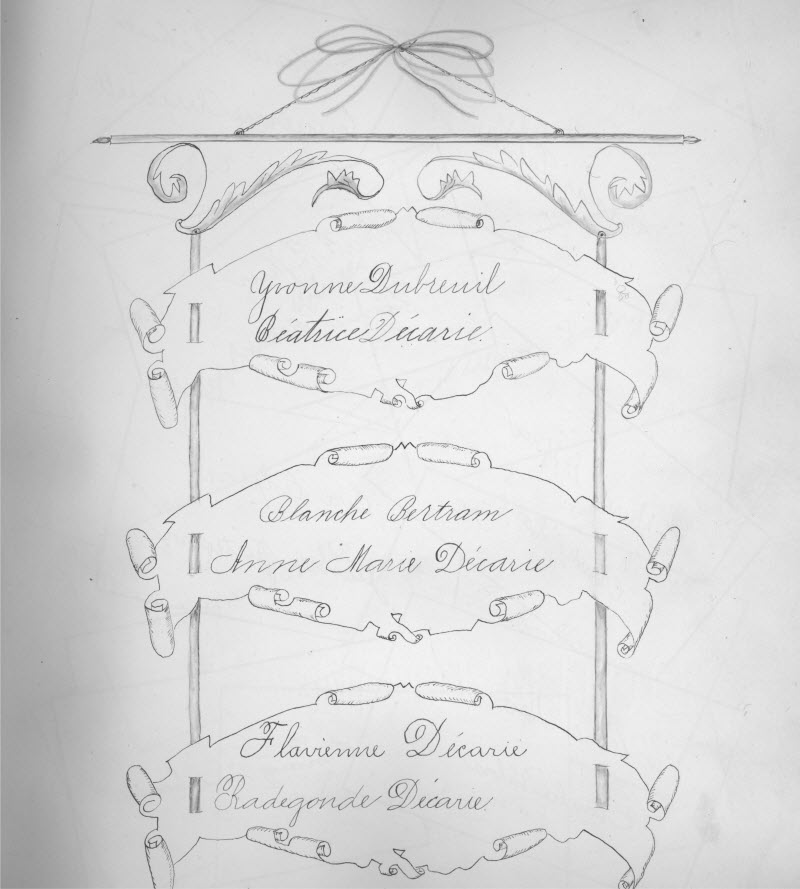 Yvonne Dubreuil
Béatrice Décarie.
Blanche Bertram
Anne Marie Décarie
Flavienne Décarie
Radegonde Décarie.